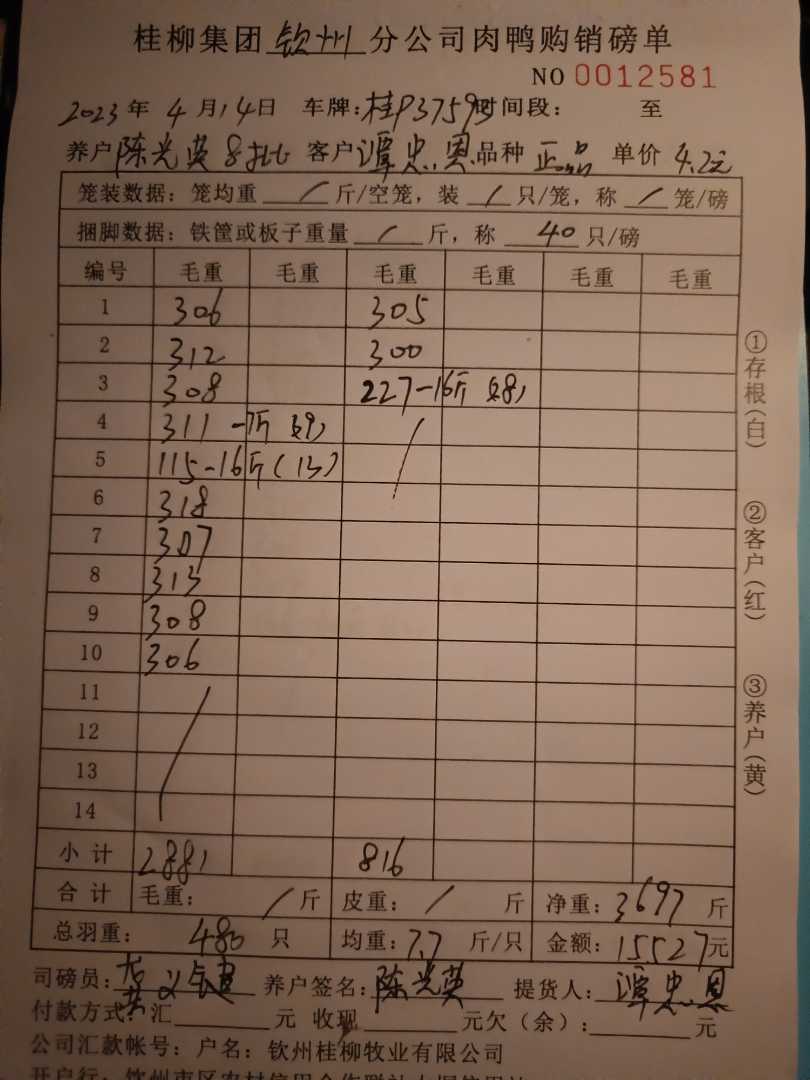 桂柳集团 钦州 分公司肉鸭购销磅单
NO 0012581
2023年 4月14日 车牌:桂P3759 时间段: 至
养户 陈光英 8批 客户 谭忠恩 品种 正品 单价 4.2元
笼装数据: 笼均重 / 斤/空笼, 装 / 只/笼, 称 / 笼/磅
捆脚数据: 铁筐或板子重量 / 斤, 称 40 只/磅
编号 毛重 毛重 毛重 毛重 毛重 毛重
1 306 305
2 312 300
3 308 227-16斤
4 311-7斤
5 115-16斤(13)
6 318
7 307
8 313
9 308
10 306
11
12
13
14
小计 2881 816
合计 毛重: / 斤 皮重: / 斤 净重: 3697 斤
总羽重: 480 只 均重: 7.7 斤/只 金额: 15527元
司磅员: 养户签名: 陈光英 提货人: 谭忠恩
付款方式: 汇 元 收现 元欠(余): 元
公司汇款帐号: 户名: 钦州桂柳牧业有限公司
①存根(白)
②客户(红)
③养户(黄)